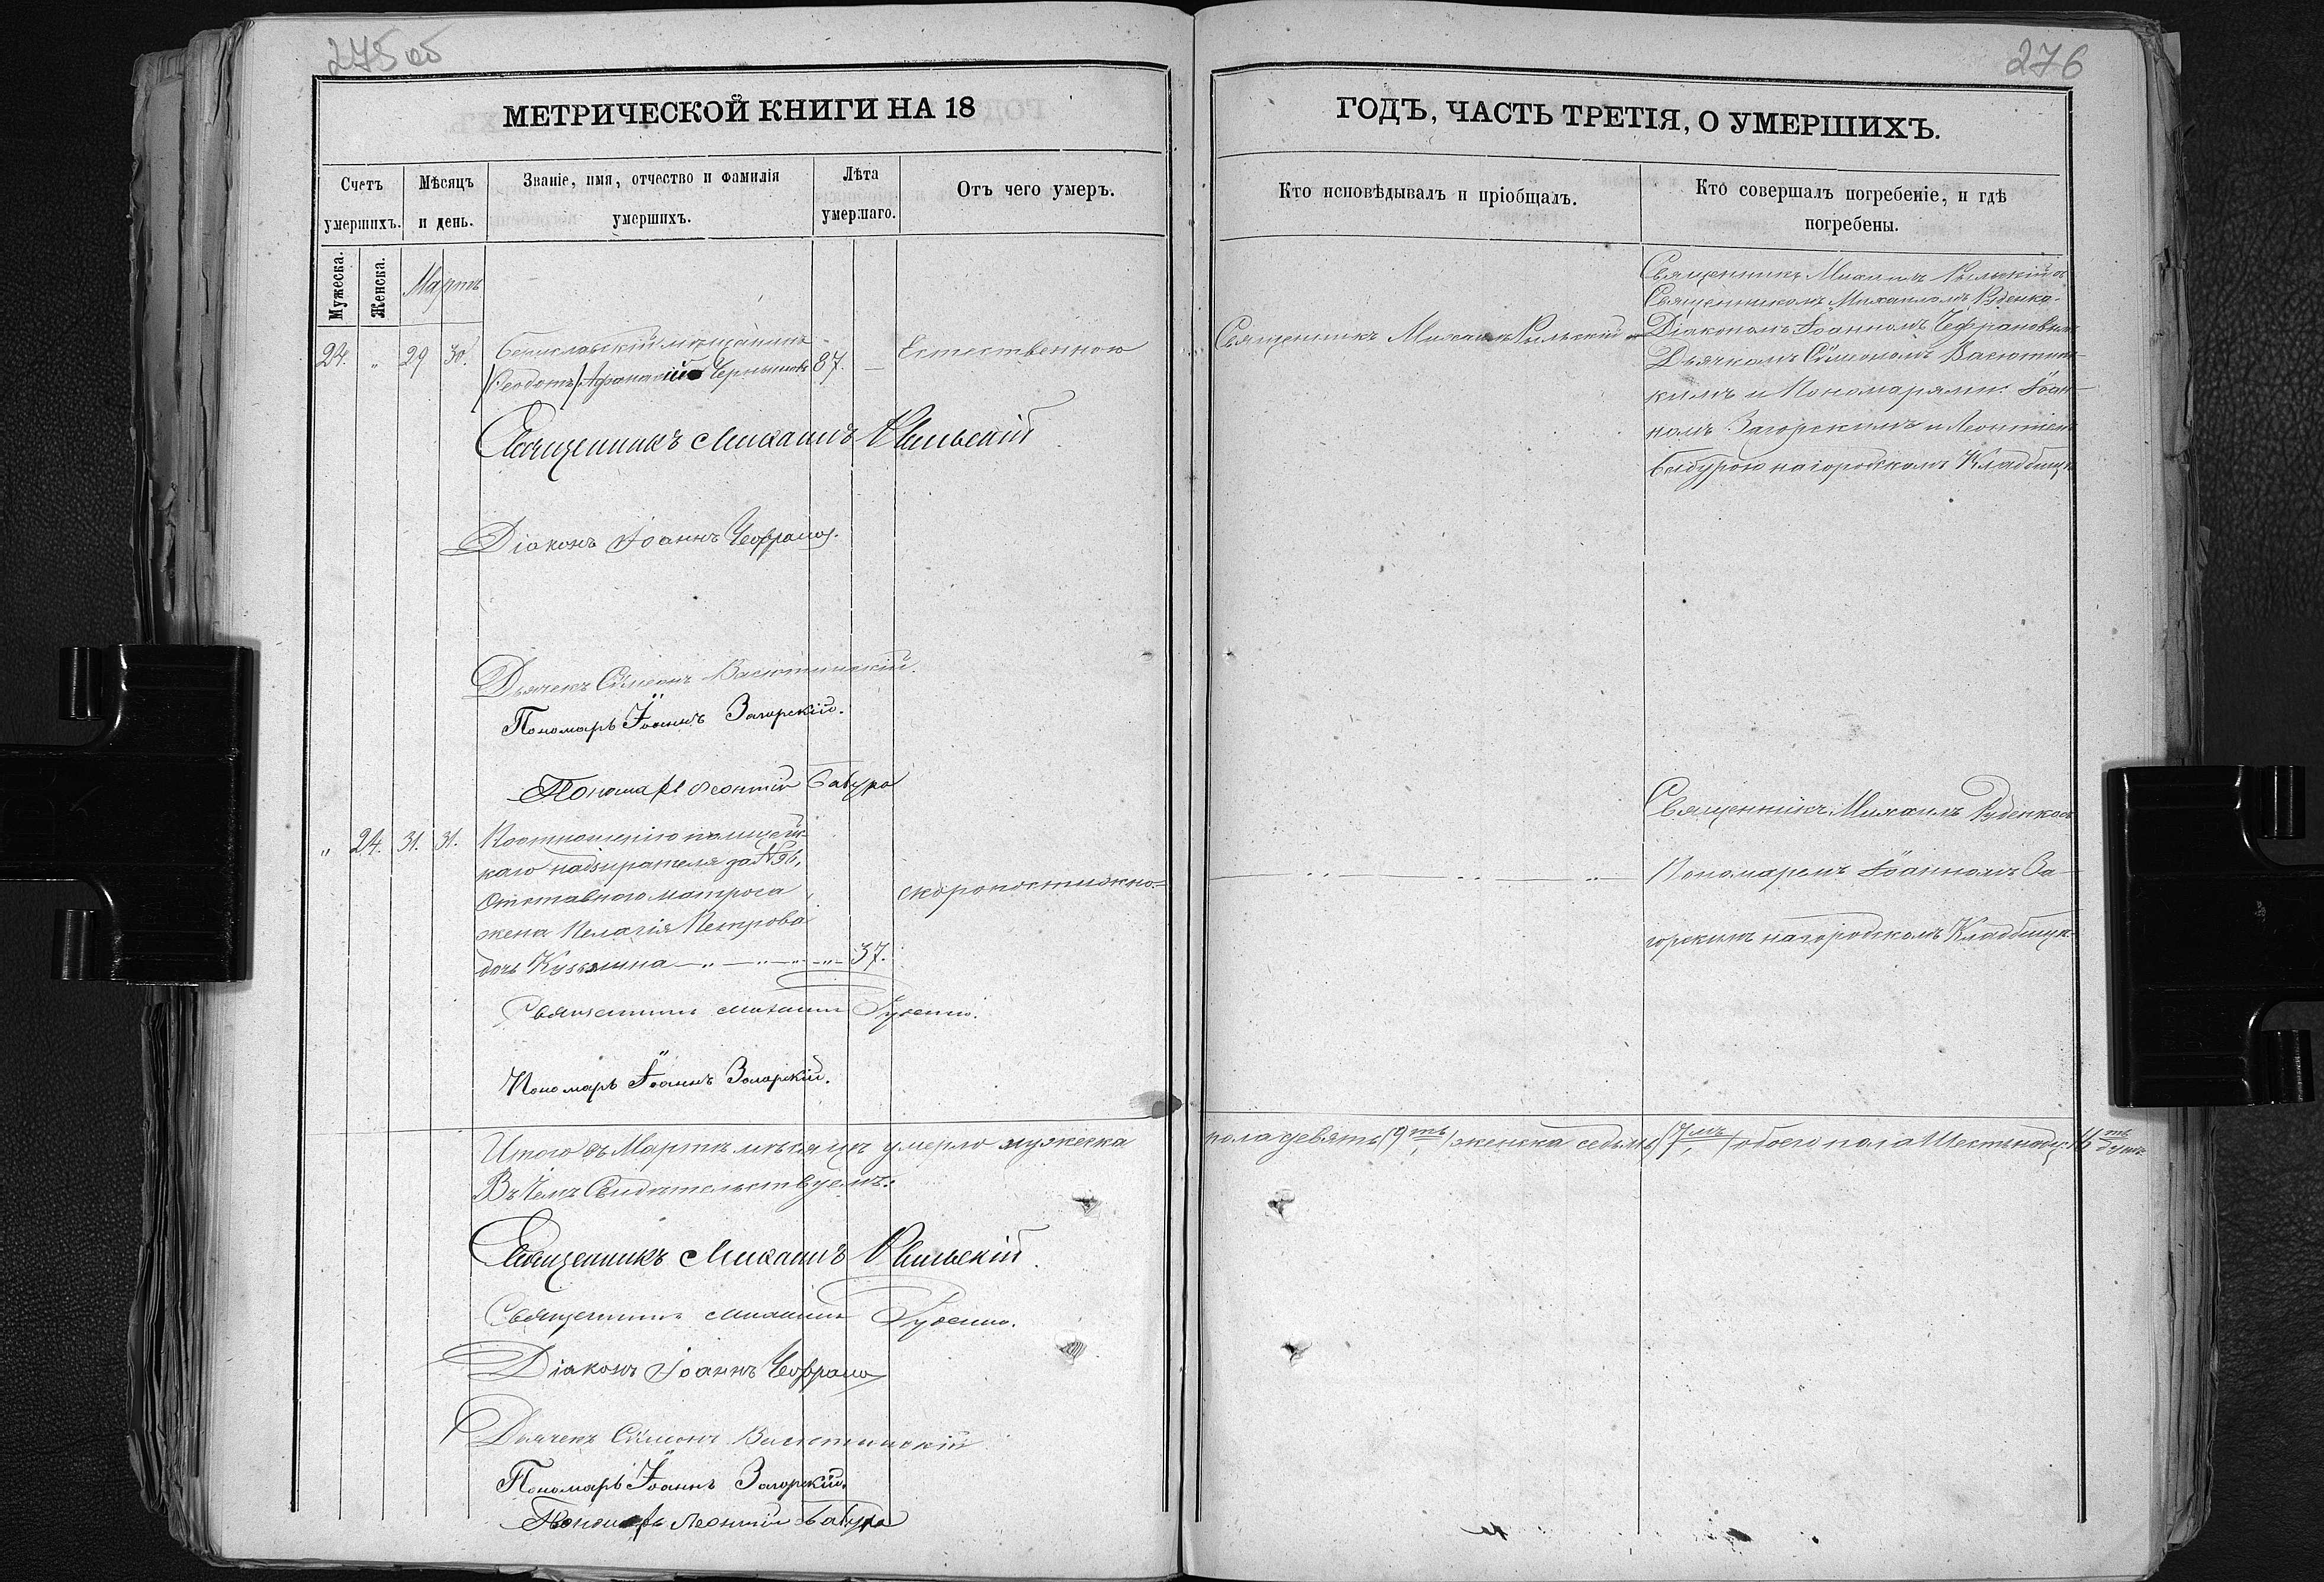 275 об
276
МЕТРИЧЕСКОЙ КНИГИ НА 18
ГОДЪ, ЧАСТЬ ТРЕТІЯ, О УМЕРШИХЪ.
Счетъ умершихъ.
Мѣсяцъ и день.
Званіе, имя, отчество и фамилія умершихъ.
Лѣта умершаго.
Отъ чего умеръ.
Кто исповѣдывалъ и пріобщалъ.
Кто совершалъ погребеніе, и гдѣ погребены.
Мужеска.
Женска.
Мартъ
24. " 29 30.
Бериславскій мѣщанинъ
Феодотъ Афанасій Чернышовъ 87. —
Естественною
Священникъ Михаилъ Рильскій
Священникъ Михаилъ Рыльскій съ
Священникомъ Михаиломъ Руденко-
Діакономъ Іоанномъ Чефрановымъ
Дьячкомъ Сѵмеономъ Васютинс-
кимъ и Пономарями: Іоан-
номъ Загорскимъ и Леонтіем
Бабурою на городскомъ Кладбищѣ
Священникъ Михаилъ Рыльскій
Діаконъ Іоаннъ Чефранов.
Дьячекъ Сѵмеонъ Васютинскій.
Пономарь Іоаннъ Загорскій.
Пономарь Леонтій Бабура
" 24. 31. 31.
По отношенію полицейс-
каго надзирателя за № 96,
Отставного матроса
жена Пелагія Петрова
дочь Кузьмина — 37.
скоропостижно.
Священникъ Михаилъ Руденко съ
Пономаремъ Іоанномъ За-
горскимъ на городскомъ Кладбищѣ
Священникъ Михаилъ Руденко.
Пономарь Іоаннъ Загорскій.
Итого въ Мартѣ мѣсяцѣ умерло мужеска
пола девять (9ть) женска седьмь (7мь) обоего пола Шестьнадц. 16ть душъ
Въ чемъ Свидѣтельствуемъ:
Священникъ Михаилъ Рыльскій.
Священникъ Михаилъ Руденко.
Діаконъ Іоаннъ Чефранов
Дьячекъ Сѵмеонъ Васютинскій
Пономарь Іоаннъ Загорскій.
Пономарь Леонтій Бабура